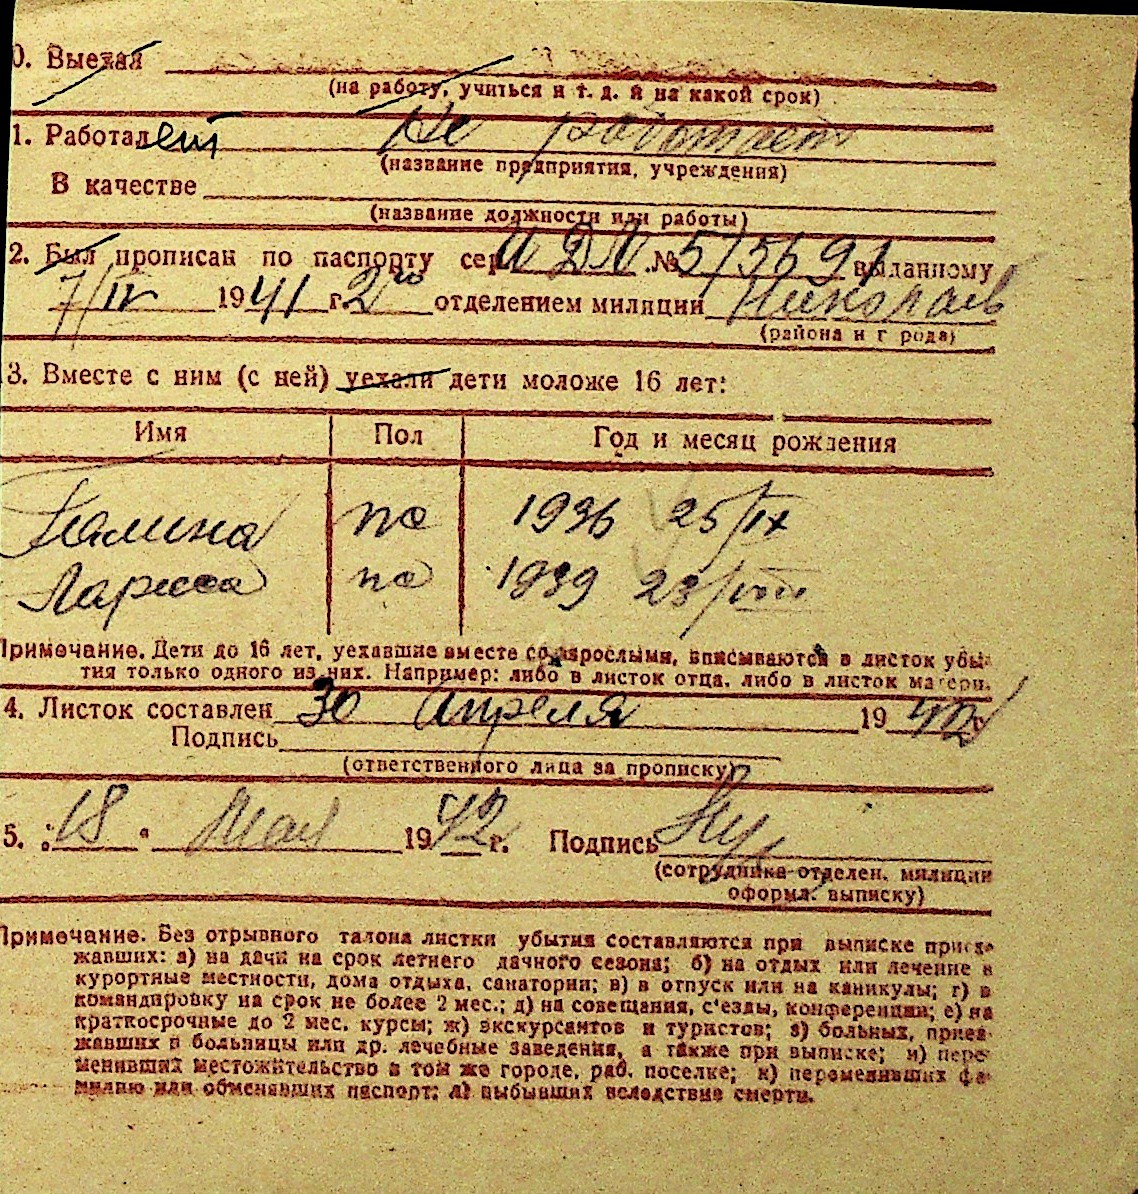 0. Выехал
(на работу, учиться и т. д. и на какой срок)
1. Работает Не работает
(название предприятия, учреждения)
В качестве
(название должности или работы)
2. Был прописан по паспорту сер № 575691 выданному
7/IV 1941 г. 2го отделением милиции Николаев
(района и города)
3. Вместе с ним (с ней) уехали дети моложе 16 лет:
Имя Пол Год и месяц рождения
Галина 1936 25/IX
Лариса 1939 23/VIII
Примечание. Дети до 16 лет, уехавшие вместе со взрослыми, вписываются в листок убы-
тия только одного из них. Например: либо в листок отца, либо в листок матери.
4. Листок составлен 30 Апреля 1942
Подпись
(ответственного лица за прописку)
5. "18" Мая 1942 г. Подпись
(сотрудника отделен. милиции
оформл. выписку)
Примечание. Без отрывного талона листки убытия составляются при выписке приез-
жавших: а) на дачи на срок летнего дачного сезона; б) на отдых или лечение в
курортные местности, дома отдыха, санатории; в) в отпуск или на каникулы; г) в
командировку на срок не более 2 мес.; д) на совещания, с'езды, конференции; е) на
краткосрочные до 2 мес. курсы; ж) экскурсантов и туристов; з) больных, приез-
жавших в больницы или др. лечебные заведения, а также при выписке; и) пере-
менивших местожительство в том же городе, раб. поселке; к) переменивших фа-
милию или обменявших паспорт; л) выбывших вследствие смерти.